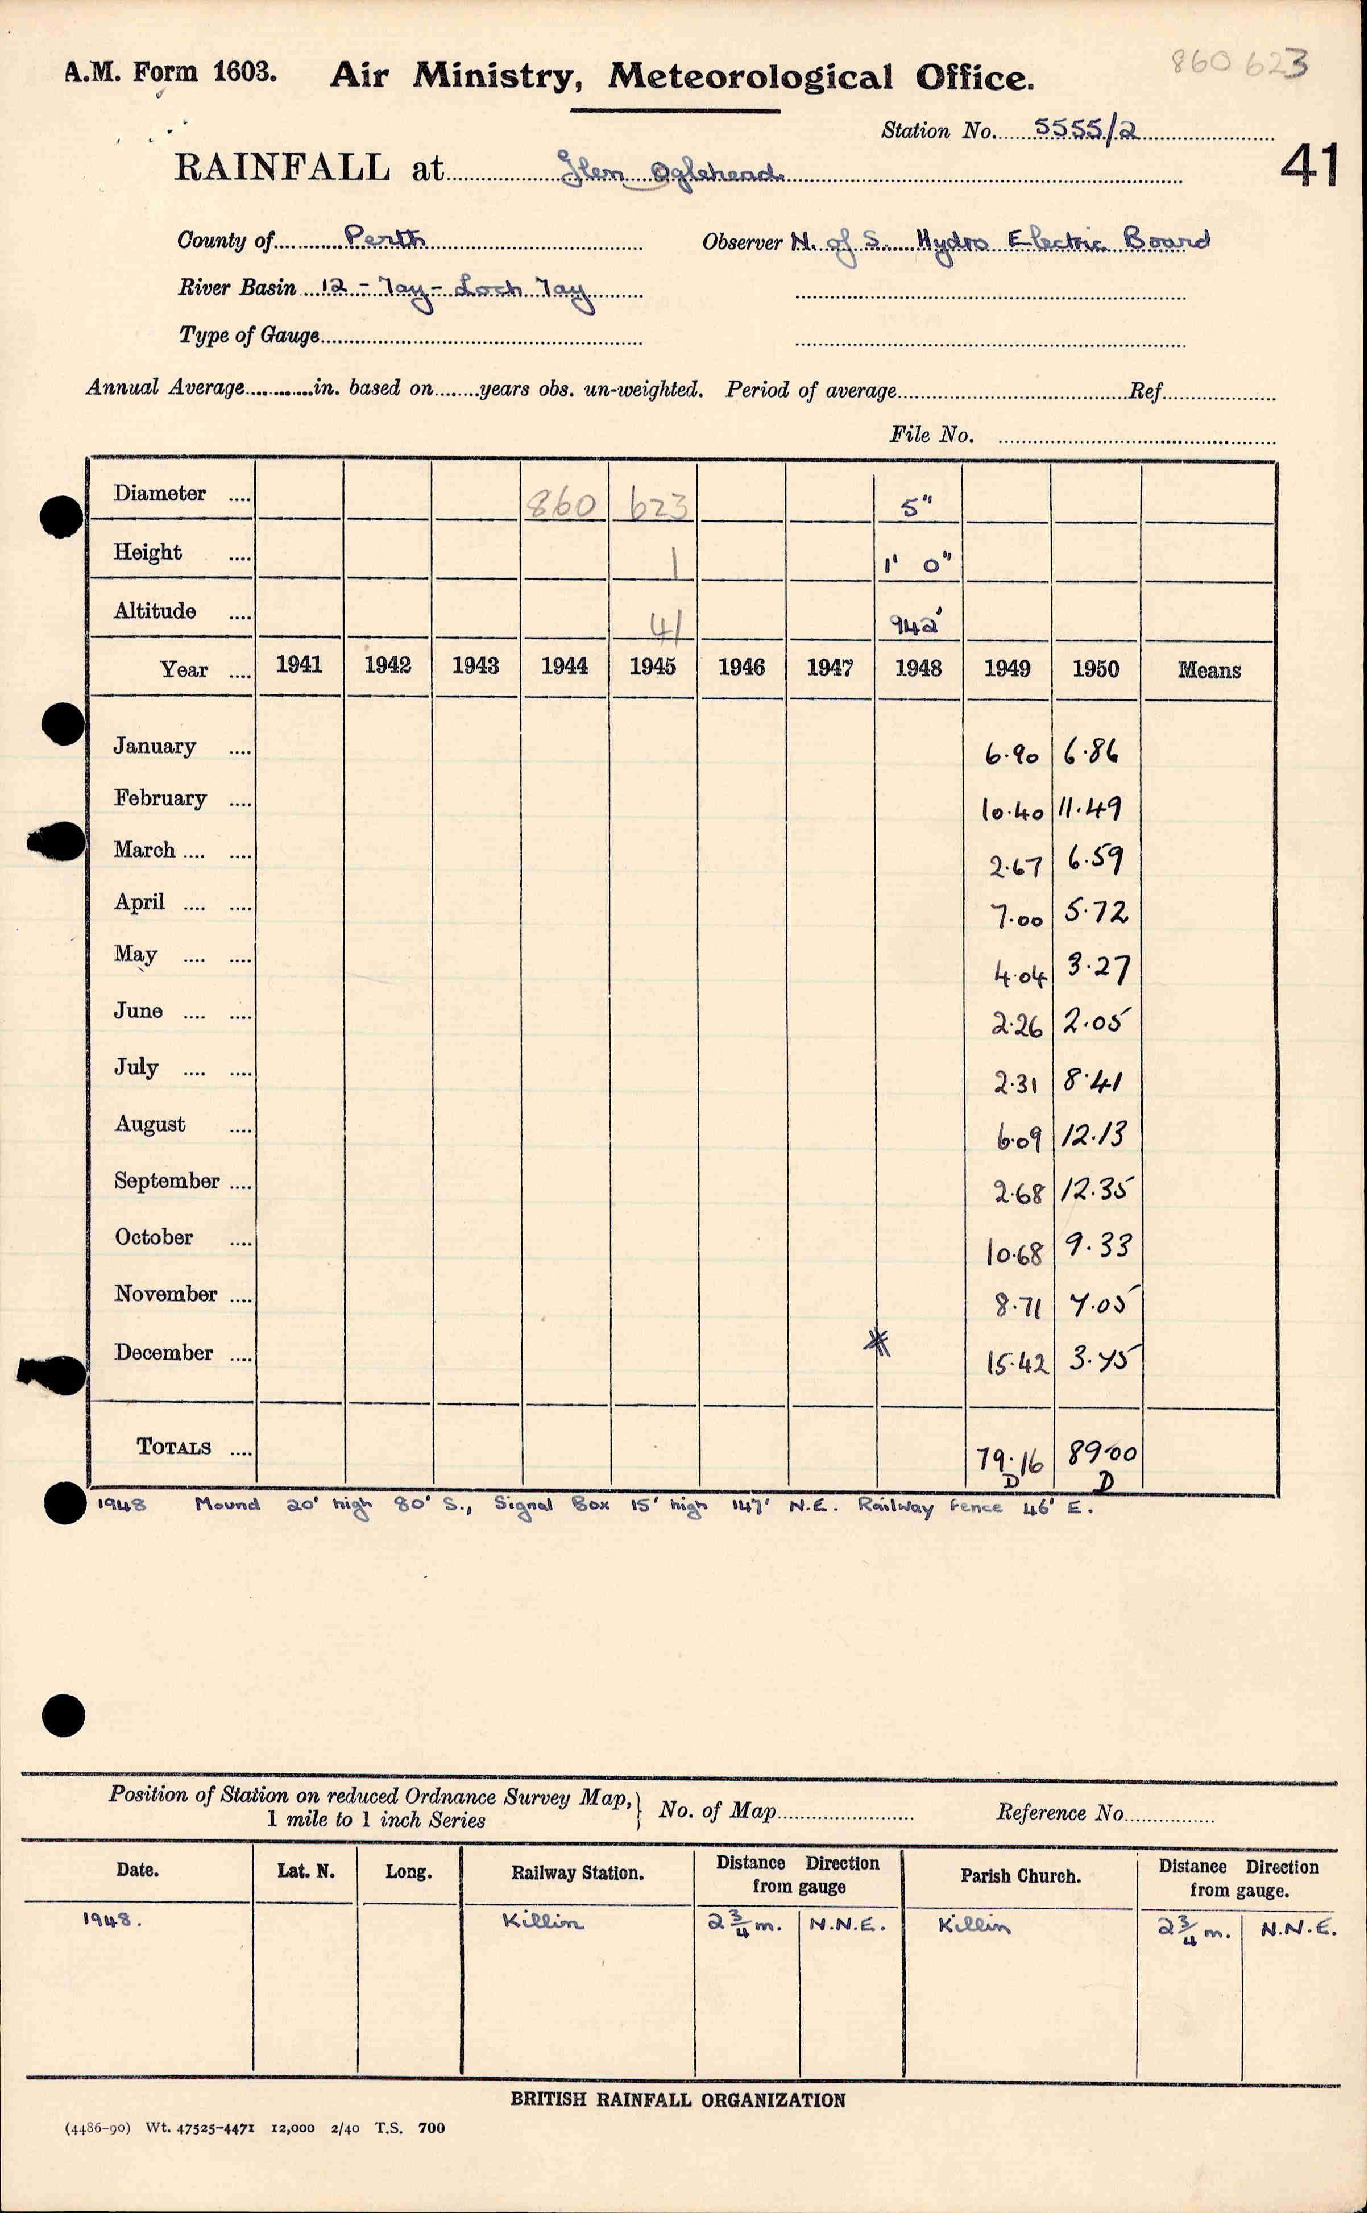 860 623
A.M. Form 1603. Air Ministry, Meteorological Office.
Station No. 5555/2
RAINFALL at Glen Oglehead 41
County of Perth Observer N. of S. Hydro Electric Board
River Basin 12 - Tay - Loch Tay
Type of Gauge
Annual Average in. based on years obs. un-weighted. Period of average Ref.
File No.
Diameter 860 623 5"
Height 1 1' 0"
Altitude 41 942'
Year 1941 1942 1943 1944 1945 1946 1947 1948 1949 1950 Means
January 6.90 6.86
February 10.40 11.49
March 2.67 6.59
April 7.00 5.72
May 4.04 3.27
June 2.26 2.05
July 2.31 8.41
August 6.09 12.13
September 2.68 12.35
October 10.68 9.33
November 8.71 7.05
December 15.42 3.75
TOTALS 79.16 89.00
D D
1948 Mound 20' high 80' S., Signal Box 15' high 147' N.E. Railway fence 46' E.
Position of Station on reduced Ordnance Survey Map, 1 mile to 1 inch Series No. of Map Reference No.
Date. Lat. N. Long. Railway Station. Distance Direction from gauge Parish Church. Distance Direction from gauge.
1948. Killin 2¾ m. N.N.E. Killin 2¾ m. N.N.E.
BRITISH RAINFALL ORGANIZATION
(4486-90) Wt. 47525-4471 12,000 2/40 T.S. 700